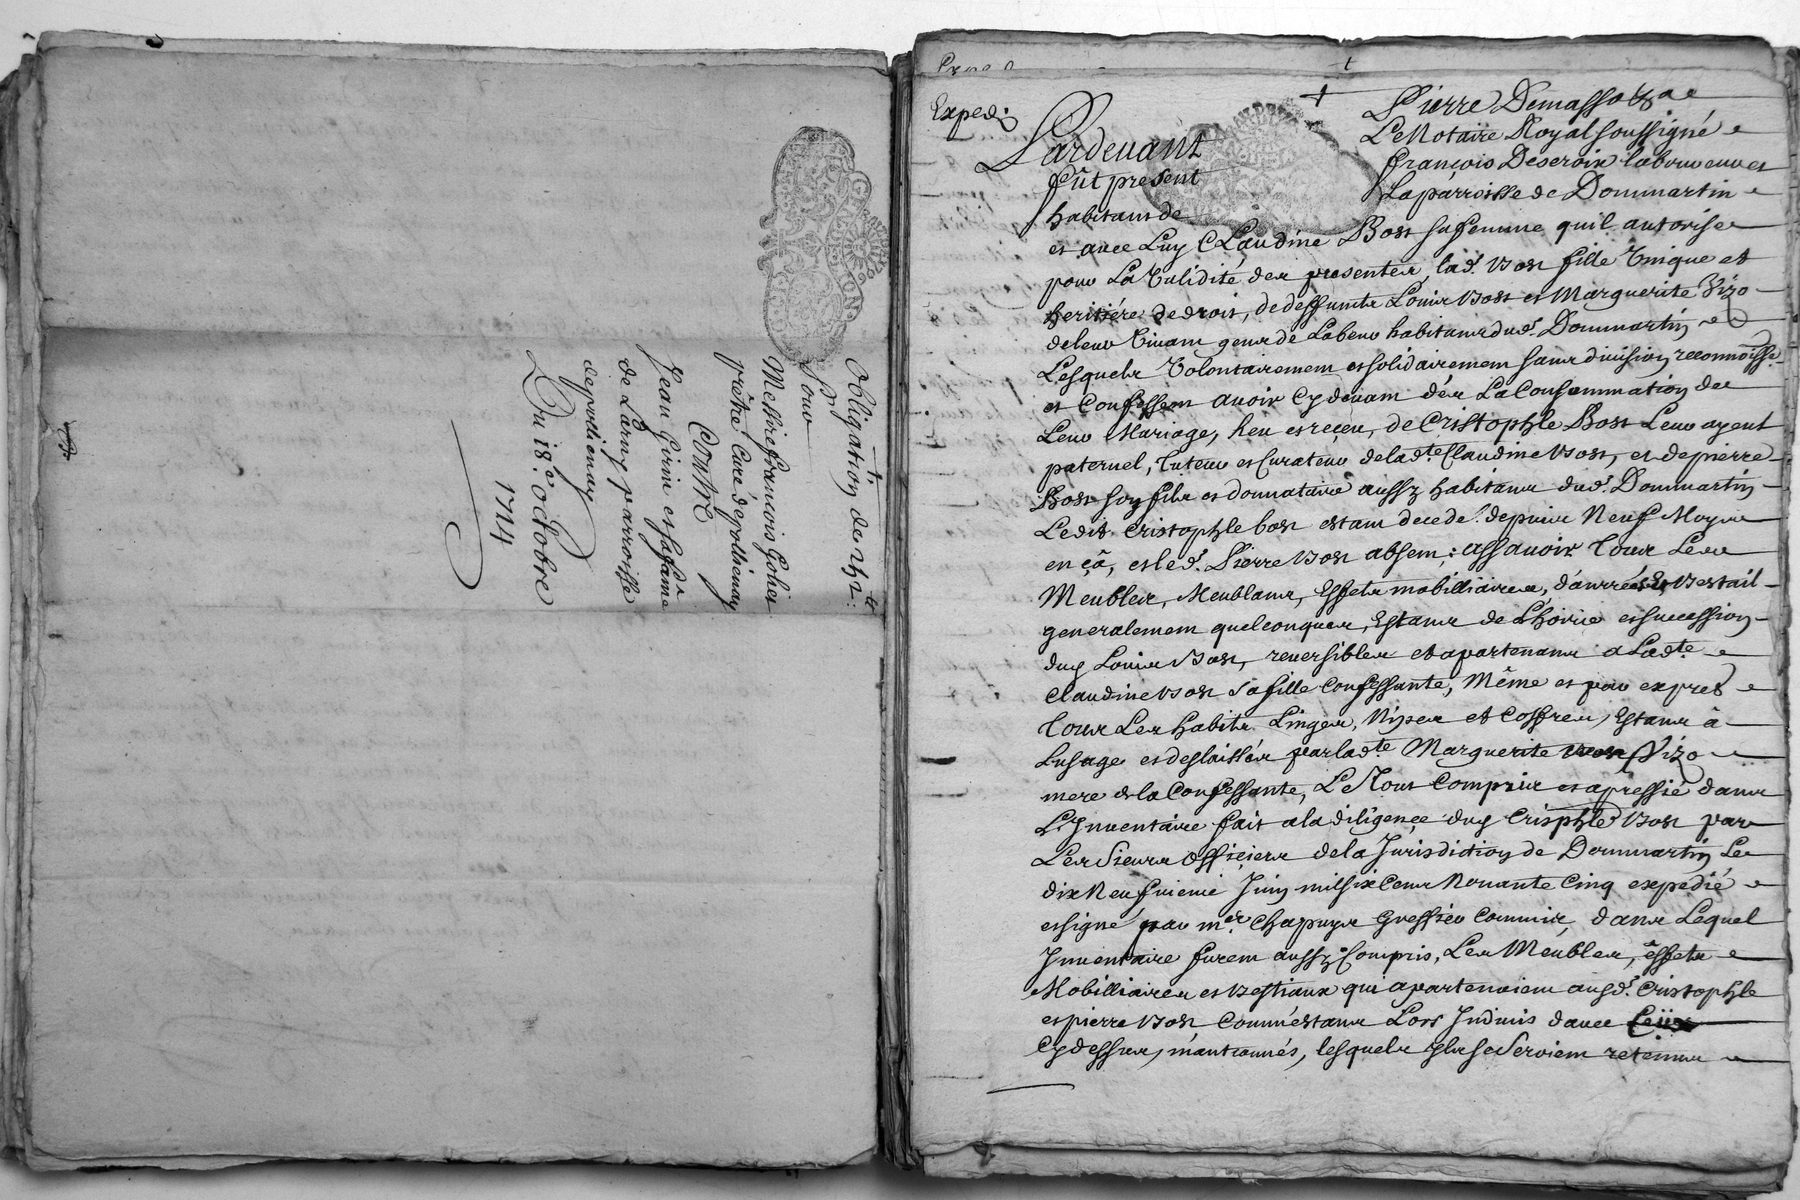 Obligation de 272: lt
Pour
Messire francois Gohet
prêtre Curé de pollienay
CONTRE
Jean Girin et sa fame
de Larny parroisse
de pollienay
Du 18e. octobre
1714
GENERA LYON
Exped:
Pierre Demasso
Pardeuant Le Notaire Royal soussigné
fût present françois Descroix laboureur et
habitant de La parroisse de Dommartin
et avec Luy CLaudine Bost sa femme quil authorise
pour La Validité des presentes, lad. Bost fille Vnique et
heritiere de droit, de deffunts Louis Bost et Marguerite Vizo
de leur Viuant gens de Labeur habitants dud. Dommartin
Lesquels Volontairement et solidairement sans diuision reconnoisse.
et Confessent auoir Cy deuant dés La Consommation de
Leur Mariage, heu et reçeu, de Cristophle Bost Leur ayeul
paternel, tuteur et Curateur de lad.te Claudine Bost, et de pierre
Bost son fils et donnataire aussy habitants dud. Dommartin
Ledit Cristophle bost estant decedé depuis Neuf Moys
en çâ, et led. Pierre Bost absent; assauoir Tous Les
Meubles, Meublans, Effets mobilliaires, danrrées Et Bestail
generalement quelconques, Estans de L'hoirie et succession
dug Louis Bost, reuersibles et apartenans a Lad.te
Claudine Bost sa fille Confessante, Même et par exprés
Tous Les habits Linges, Nipes et Coffres, Estans à
Lusage et deslaissés par lad.te Marguerite Vizo
mere de la Confessante, Le Tout Compris et apressié dans
L'Inuentaire fait a la diligençe dug Crisphle Bost par
Les Sieurs Officiers de la Jurisdiction de Dommartin Le
dix Neufuieme Juin mil six Cens Nonante Cinq expedié
et signé par m.er Chapuys Greffier Commis, dans Lequel
Inuentaire furent aussy Compris, Les Meubles, Effets
Mobilliaires et Bestiaux qui apartenoient ausd. Cristophle
et pierre Bost Comme estans Lors Indiuis dauec Ceüx
Cy dessus, mantionnés, lesquels yls se seroient retenus